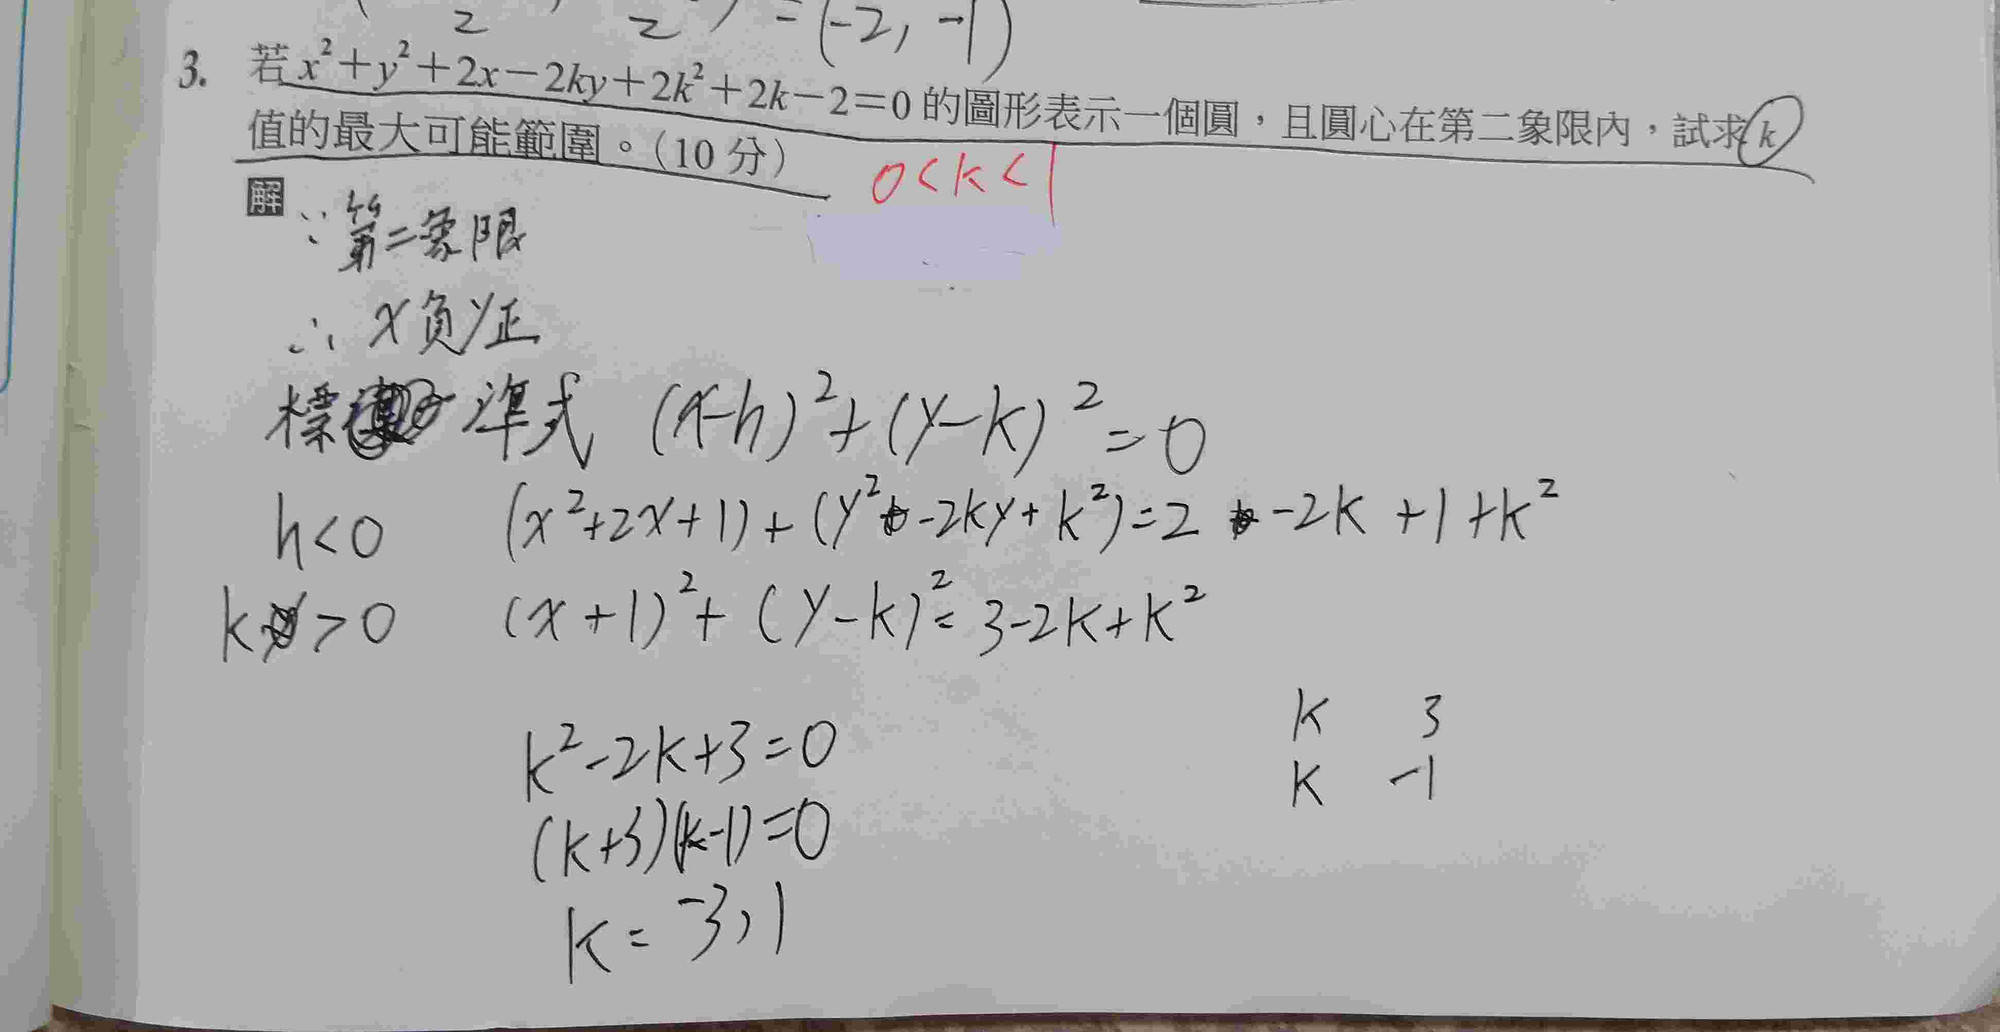 2 2 ) = (-2, -1)
3. 若 x²+y²+2x-2ky+2k²+2k-2=0 的圖形表示一個圓,且圓心在第二象限內,試求 k
值的最大可能範圍。(10 分)
0<k<1
解 ∵第二象限
∴ x負y正
標準式 (x-h)²+(y-k)²=0
h<0 (x²+2x+1)+(y²-2ky+k²)=2-2k+1+k²
k>0 (x+1)²+(y-k)²=3-2k+k²
k²-2k+3=0
k 3
k -1
(k+3)(k-1)=0
k=-3,1